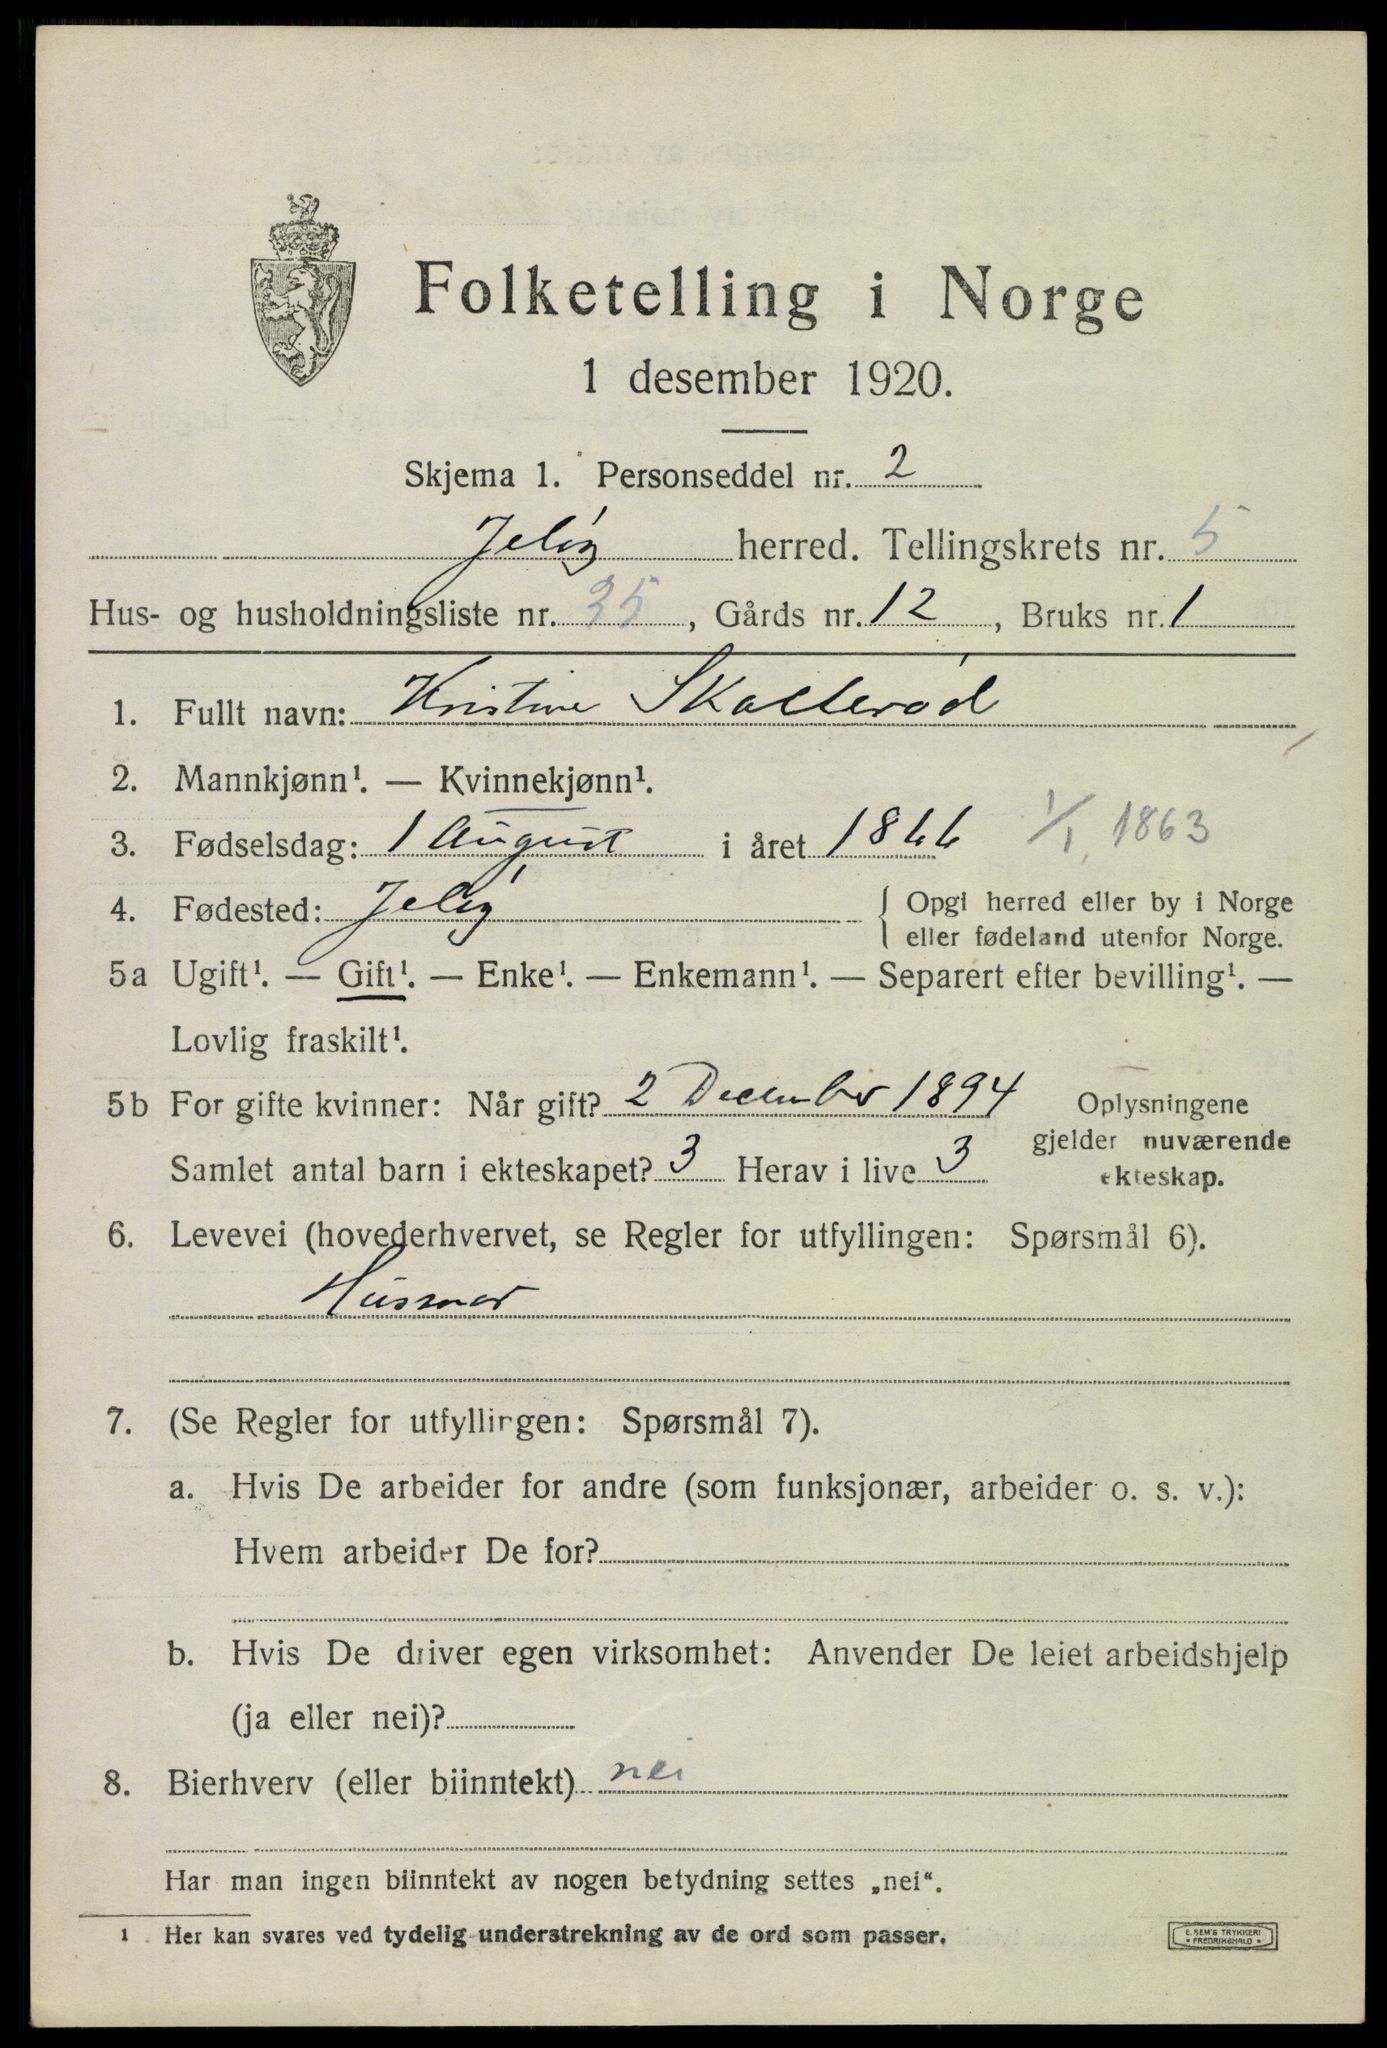 Folketelling i Norge
1 desember 1920.
Skjema 1. Personseddel nr. 2
Jeløy herred. Tellingskrets nr. 5
Hus- og husholdningsliste nr. 35, Gårds nr. 12, Bruks nr. 1
1. Fullt navn: Kristine Skallerød
2. Mannkjønn¹. — Kvinnekjønn¹.
3. Fødselsdag: 1 August i året 1866 1/1 1863
4. Fødested: Jeløy { Opgi herred eller by i Norge
eller fødeland utenfor Norge.
5a Ugift¹. — Gift¹. — Enke¹. — Enkemann¹. — Separert efter bevilling¹. —
Lovlig fraskilt¹.
5b For gifte kvinner: Når gift? 2 December 1894 Oplysningene
gjelder nuværende
Samlet antal barn i ekteskapet? 3 Herav i live 3 ekteskap.
6. Levevei (hovederhvervet, se Regler for utfyllingen: Spørsmål 6).
Husmor
7. (Se Regler for utfyllingen: Spørsmål 7).
a. Hvis De arbeider for andre (som funksjonær, arbeider o. s. v.):
Hvem arbeider De for?
b. Hvis De driver egen virksomhet: Anvender De leiet arbeidshjelp
(ja eller nei)?
8. Bierhverv (eller biinntekt) nei
Har man ingen biinntekt av nogen betydning settes „nei“.
1 Her kan svares ved tydelig understrekning av de ord som passer.
E. SEM'S TRYKKERI
FREDRIKSHALD